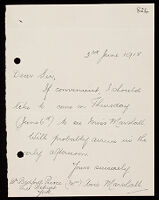 826
3rd June 1918
Dear Sir,
If convenient, I should
like to come on Thursday
(June 6th) to see Miss Marshall
Will probably arrive in the
early afternoon.
Yours sincerely
(Mrs) Marshall
York